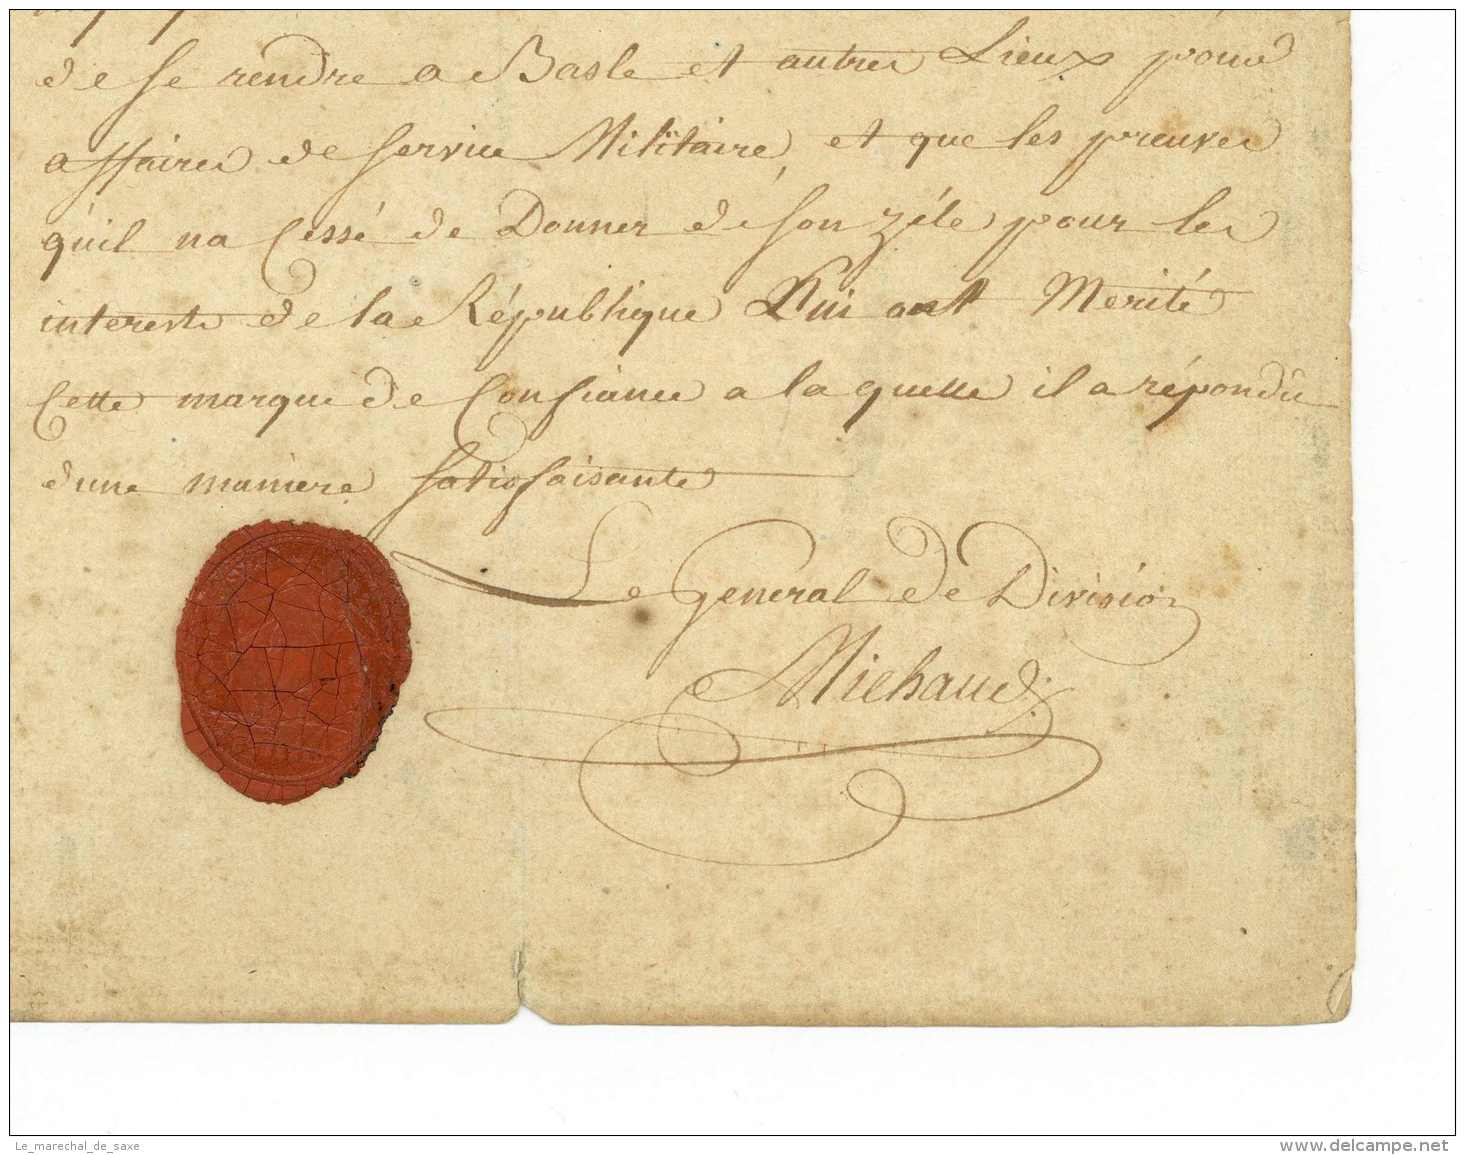 de se rendre a Basle et autres Lieux pour
affaires de service Militaire, et que les preuves
qu'il na Cessé de Donner de son zéle pour les
interests de la République Lui ont Merité
Cette marque de Confiance a la quelle il a répondu
dune maniere satisfaisante
Le General de Division
Michaud
Le_marechal_de_saxe
www.delcampe.net